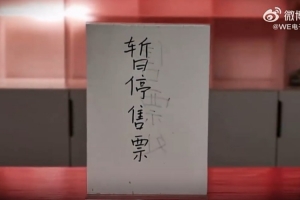 暂停售票
微博
@WE电